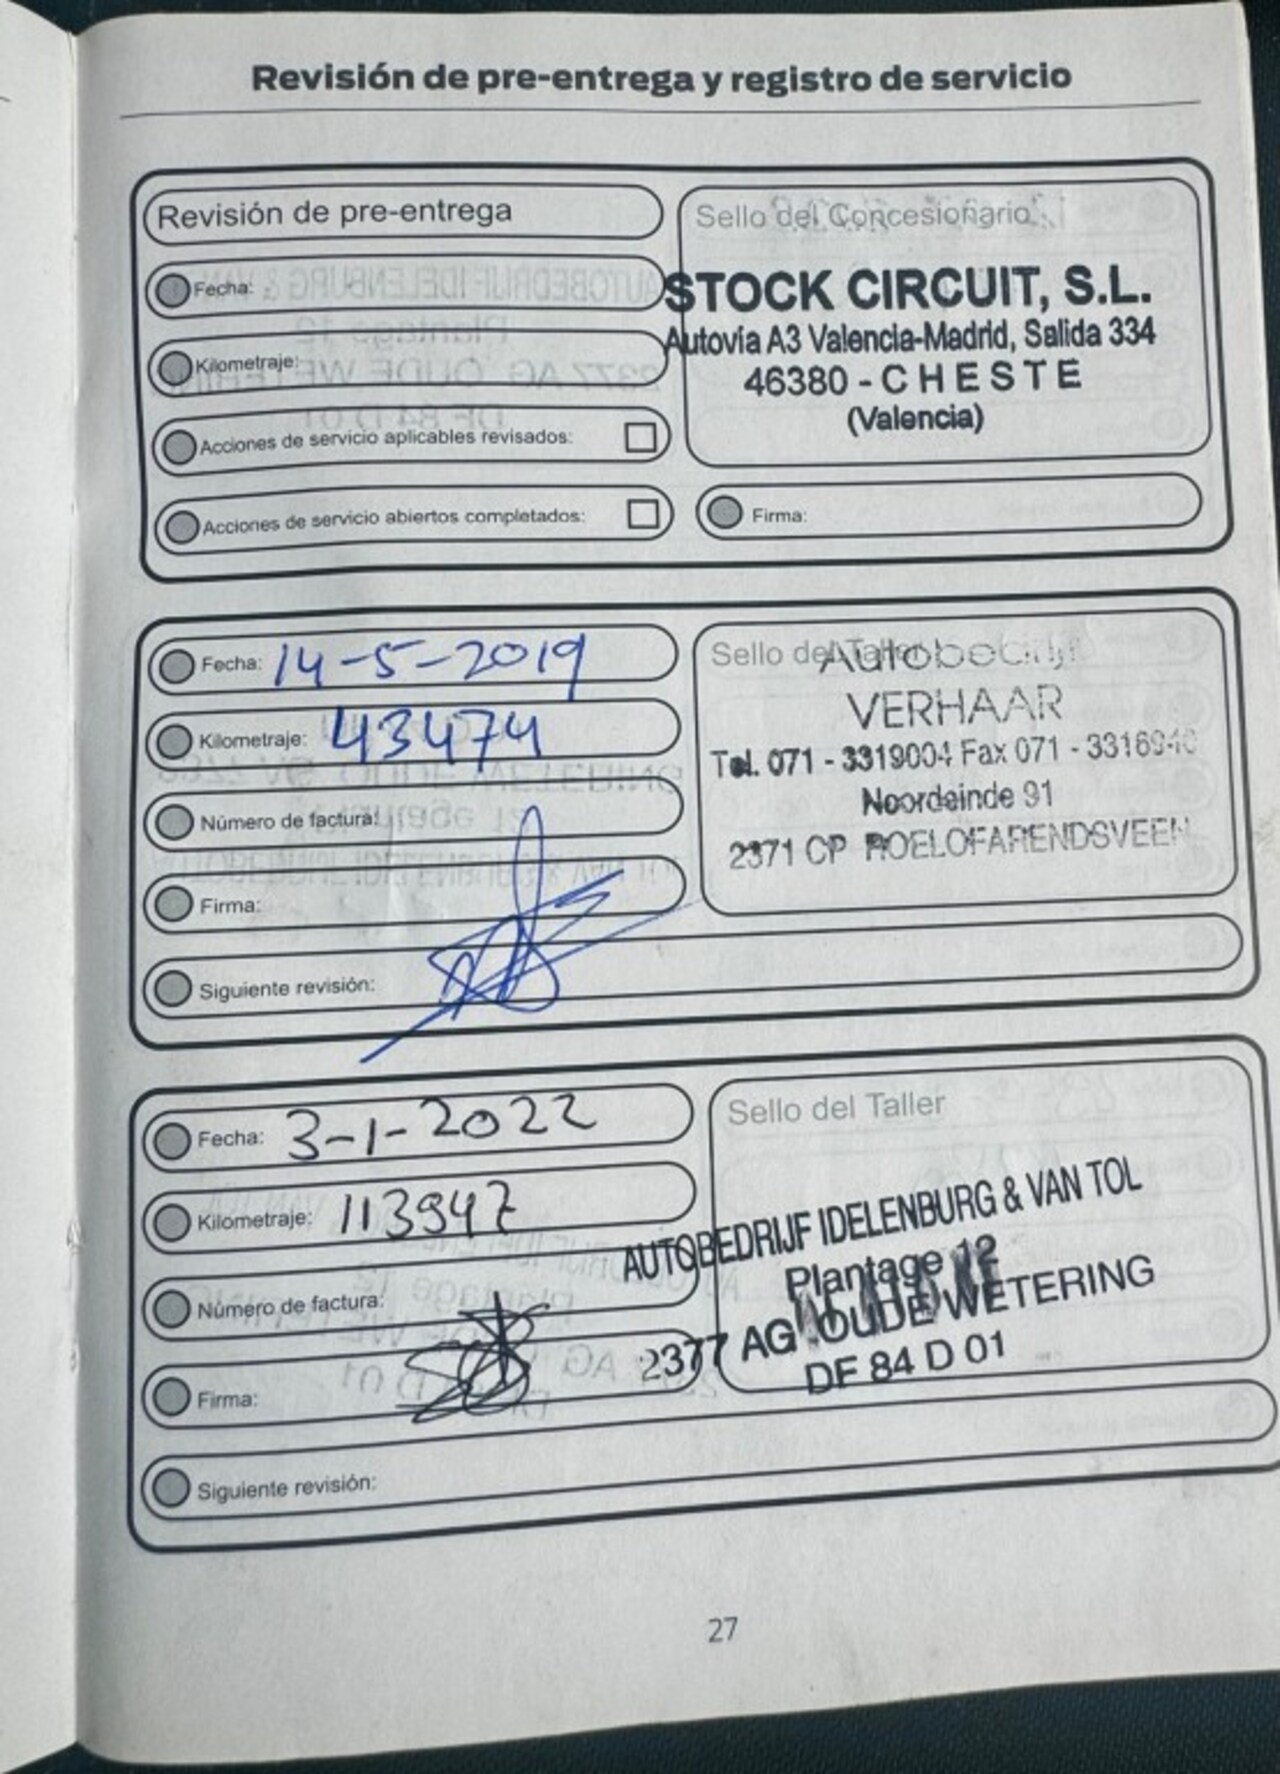 Revisión de pre-entrega y registro de servicio
Revisión de pre-entrega
Sello del Concesionario
Fecha:
STOCK CIRCUIT, S.L.
Autovía A3 Valencia-Madrid, Salida 334
Kilometraje:
46380 - CHESTE
(Valencia)
Acciones de servicio aplicables revisados:
Acciones de servicio abiertos completados:
Firma:
Fecha: 14-5-2019
Sello del Taller
Autobedrijf
VERHAAR
Kilometraje: 43474
Tel. 071 - 3319004 Fax 071 - 3316940
Noordeinde 91
Número de factura:
2371 CP ROELOFARENDSVEEN
Firma:
Siguiente revisión:
Fecha: 3-1-2022
Sello del Taller
Kilometraje: 113947
AUTOBEDRIJF IDELENBURG & VAN TOL
Plantage 12
Número de factura:
2377 AG OUDE WETERING
DF 84 D 01
Firma:
Siguiente revisión:
27